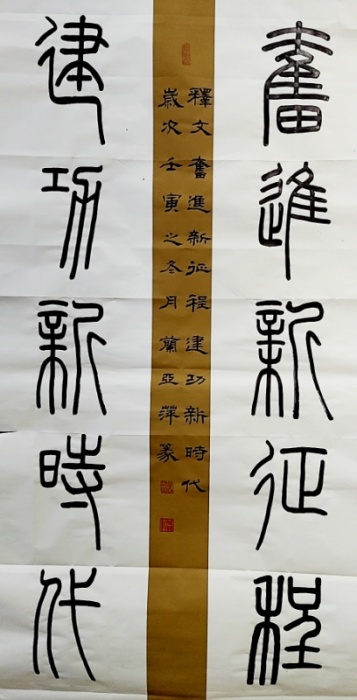 奮進新征程
建功新時代
釋文 奮進新征程 建功新時代
歲次壬寅之冬月蘭亞萍篆